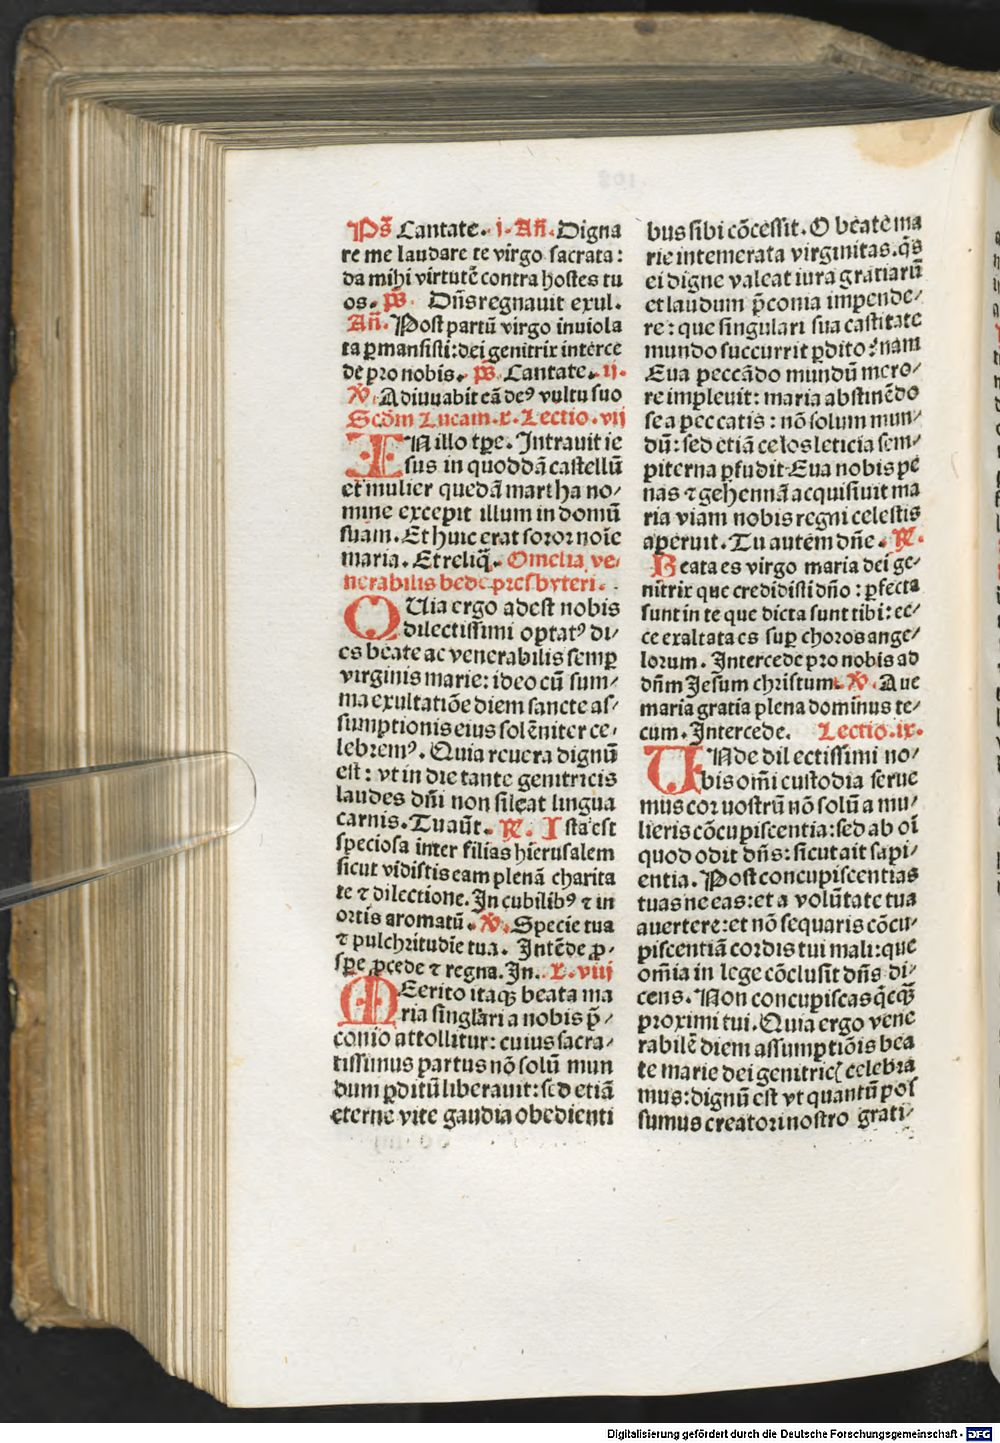 Ps̄ Cantate. i. Añ. Digna
re me laudare te virgo sacrata:
da mihi virtutē contra hostes tu
os. ps̄. Dn̄s regnauit exul.
Añ. Post partū virgo inuiola
ta ꝑmansisti: dei genitrix interce
de pro nobis. ps̄. Cantate. ij.
v̄. Adiuuabit eā deꝰ vultu suo
Scd̄m Lucam. x. Lectio. vij
IN illo tp̄e. Intrauit ie
sus in quoddā castellū
et mulier quedā martha no/
mine excepit illum in domū
suam. Et huic erat soror noīe
maria. Et reliq̄. Omelia ve/
nerabilis bede presbyteri.
QUia ergo adest nobis
dilectissimi optatꝰ di/
es beate ac venerabilis semꝑ
virginis marie: ideo cū sum/
ma exultatiōe diem sancte as/
sumptionis eius solēniter ce/
lebremꝰ. Quia reuera dignū
est: vt in die tante genitricis
laudes dn̄i non sileat lingua
carnis. Tu aūt. ℟. Ista est
speciosa inter filias hierusalem
sicut vidistis eam plenā charita
te ⁊ dilectione. In cubilibꝰ ⁊ in
ortis aromatū. v̄. Specie tua
⁊ pulchritudīe tua. Intēde ꝓ/
spe ꝓcede ⁊ regna. In. L. viij
MErito itaqꝫ beata ma
ria singl̄ari a nobis p̄/
conio attollitur: cuius sacra/
tissimus partus nō solū mun
dum ꝑditū liberauit: sed etiā
eterne vite gaudia obedienti
bus sibi cōcessit. O beate ma
rie intemerata virginitas. q̄s
ei digne valeat iura gratiarū
et laudum p̄conia impende/
re: que singulari sua castitate
mundo succurrit ꝑdito: nam
Eua peccādo mundū mero/
re impleuit: maria abstinēdo
se a peccatis: nō solum mun/
dū: sed etiā celos leticia sem/
piterna ꝑfudit. Eua nobis pe
nas ⁊ gehennā acquisiuit ma
ria viam nobis regni celestis
aperuit. Tu autem dn̄e. ℟.
Beata es virgo maria dei ge/
nitrix que credidisti dn̄o: ꝑfecta
sunt in te que dicta sunt tibi: ec/
ce exaltata es suꝑ choros ange/
lorum. Intercede pro nobis ad
dn̄m Jesum christum. v̄. Aue
maria gratia plena dominus te/
cum. Intercede. Lectio. ix.
UNde dilectissimi no/
bis om̄i custodia serue
mus cor uostrū nō solū a mu/
lieris cōcupiscentia: sed ab oī
quod odit dn̄s: sicut ait sapi/
entia. Post concupiscentias
tuas ne eas: et a volūtate tua
auertere: et nō sequaris cōcu/
piscentiā cordis tui mali: que
om̄ia in lege cōclusit dn̄s di/
cens. Non concupiscas q̄cqꝫ
proximi tui. Quia ergo vene
rabilē diem assumptiōis bea
te marie dei genitricꝭ celebra
mus: dignū est vt quantū pos
sumus creatori nostro grati/
Digitalisierung gefördert durch die Deutsche Forschungsgemeinschaft - DFG